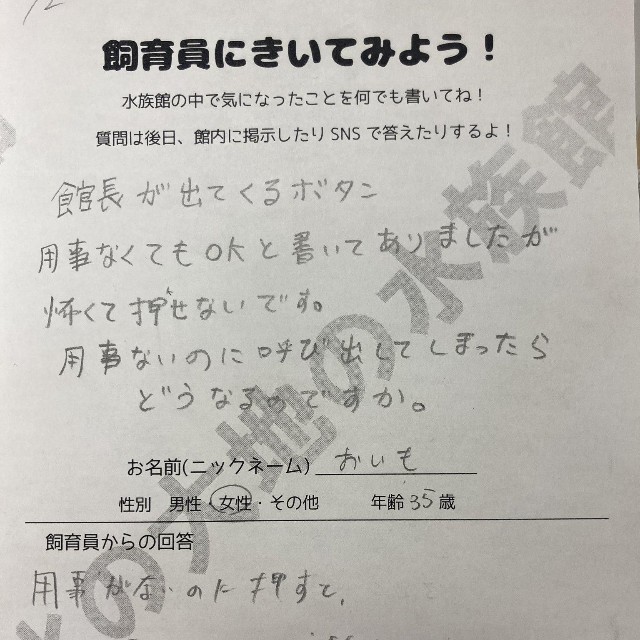 飼育員にきいてみよう！
水族館の中で気になったことを何でも書いてね！
質問は後日、館内に掲示したりSNSで答えたりするよ！
館長が出てくるボタン
用事なくてもOKと書いてありましたが
怖くて押せないです。
用事ないのに呼び出してしまったら
どうなるのですか。
お名前(ニックネーム) おいも
性別 男性・女性・その他 年齢 35 歳
飼育員からの回答
用事がないのに押すと、
の大地の水族館